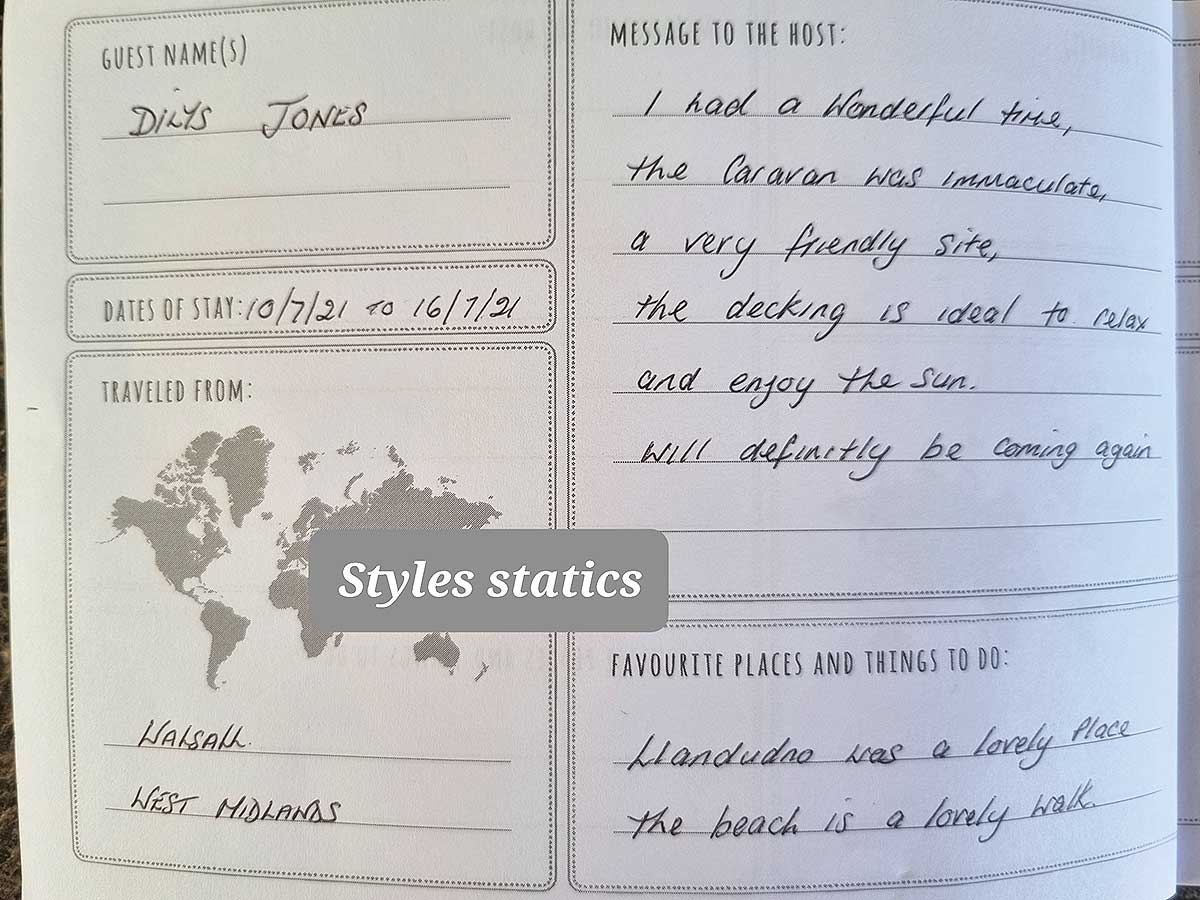 GUEST NAME(S)
DILYS JONES
DATES OF STAY: 10/7/21 to 16/7/21
TRAVELED FROM:
WALSALL.
WEST MIDLANDS
MESSAGE TO THE HOST:
I had a Wonderful time,
the Caravan was immaculate,
a very friendly site,
the decking is ideal to relax
and enjoy the sun.
will definitly be coming again
Styles statics
FAVOURITE PLACES AND THINGS TO DO:
Llandudno was a lovely Place
the beach is a lovely walk.